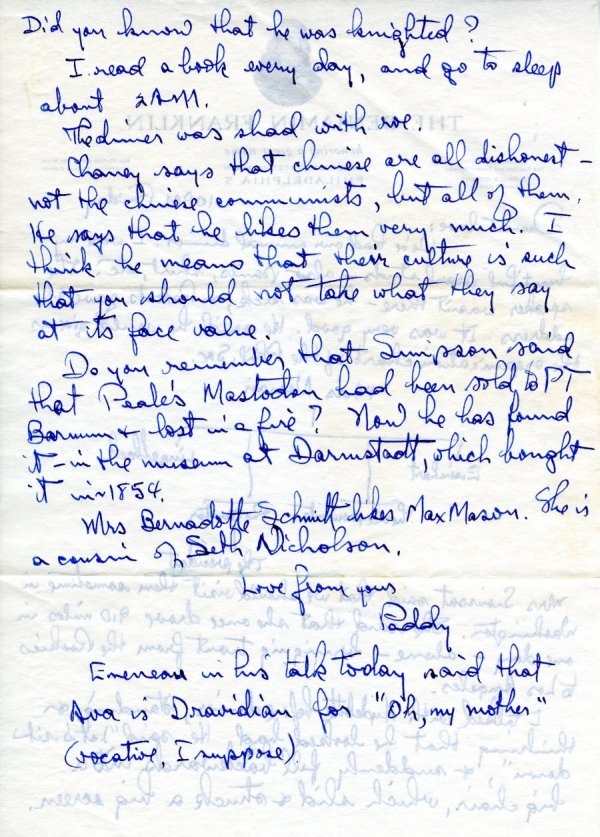 Did you know that he was knighted?
I read a book every day, and go to sleep
about 2AM.
The dinner was shad with roe.
Chaney says that chinese are all dishonest –
not the chinese communists, but all of them.
He says that he likes them very much. I
think he means that their culture is such
that you should not take what they say
at its face value.
Do you remember that Simpson said
that Peale's Mastodon had been sold to PT
Barnum & lost in a fire? Now he has found
it – in the museum at Darmstadt, which bought
it in 1854.
Mrs Bernadotte Schmitt likes Max Mason. She is
a cousin of Seth Nicholson.
Love from yous
Paddy
Emeneau in his talk today said that
Ava is Dravidian for "Oh, my mother"
(vocative, I suppose).